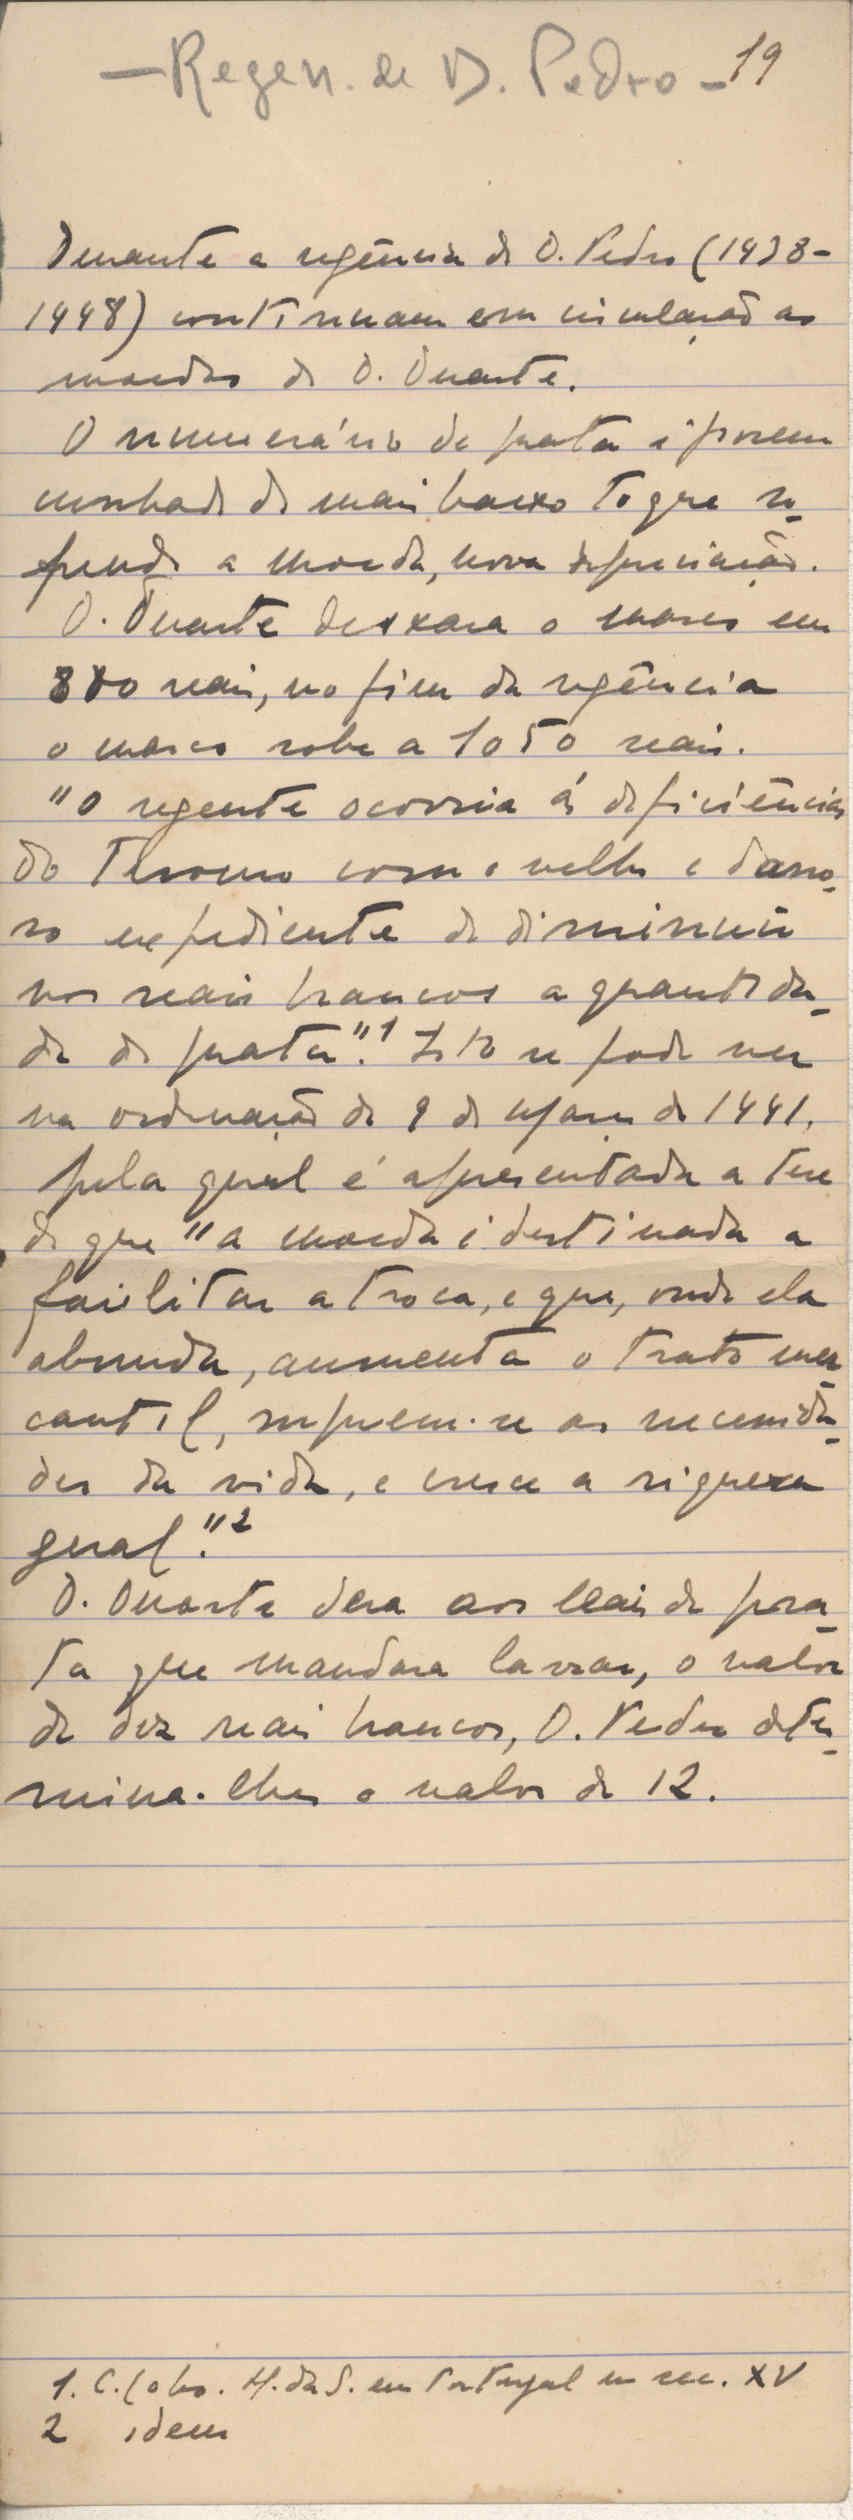 — Regen. de D. Pedro — 19
Durante a regência de D. Pedro (1438-
1448) continuam em circulação as
moedas de D. Duarte.
O numerário de prata é porem
cunhado de mais baixo toque so-
frendo a moeda, nova depreciação.
D. Duarte deixara o marco em
800 reais, no fim da regência
o marco sobe a 1050 reais.
"O regente ocorria ás deficiências
do Tesouro com o velho e dano-
so expediente de diminuir
nos reais brancos a quantida-
de de prata".1 Isto se pode ver
na ordenação de 9 de março de 1441,
pela qual é apresentada a tese
de que "a moeda é destinada a
facilitar a troca, e que, onde ela
abunda, aumenta o trato mer-
cantil, suprem-se as necessida-
des da vida, e cresce a riqueza
geral".2
D. Duarte dera aos leais de pra-
ta que mandara lavrar, o valor
de dez reais brancos, D. Pedro deter-
mina-lhes o valor de 12.
1. C. Lobo. H. da S. em Portugal no sec. XV
2 idem